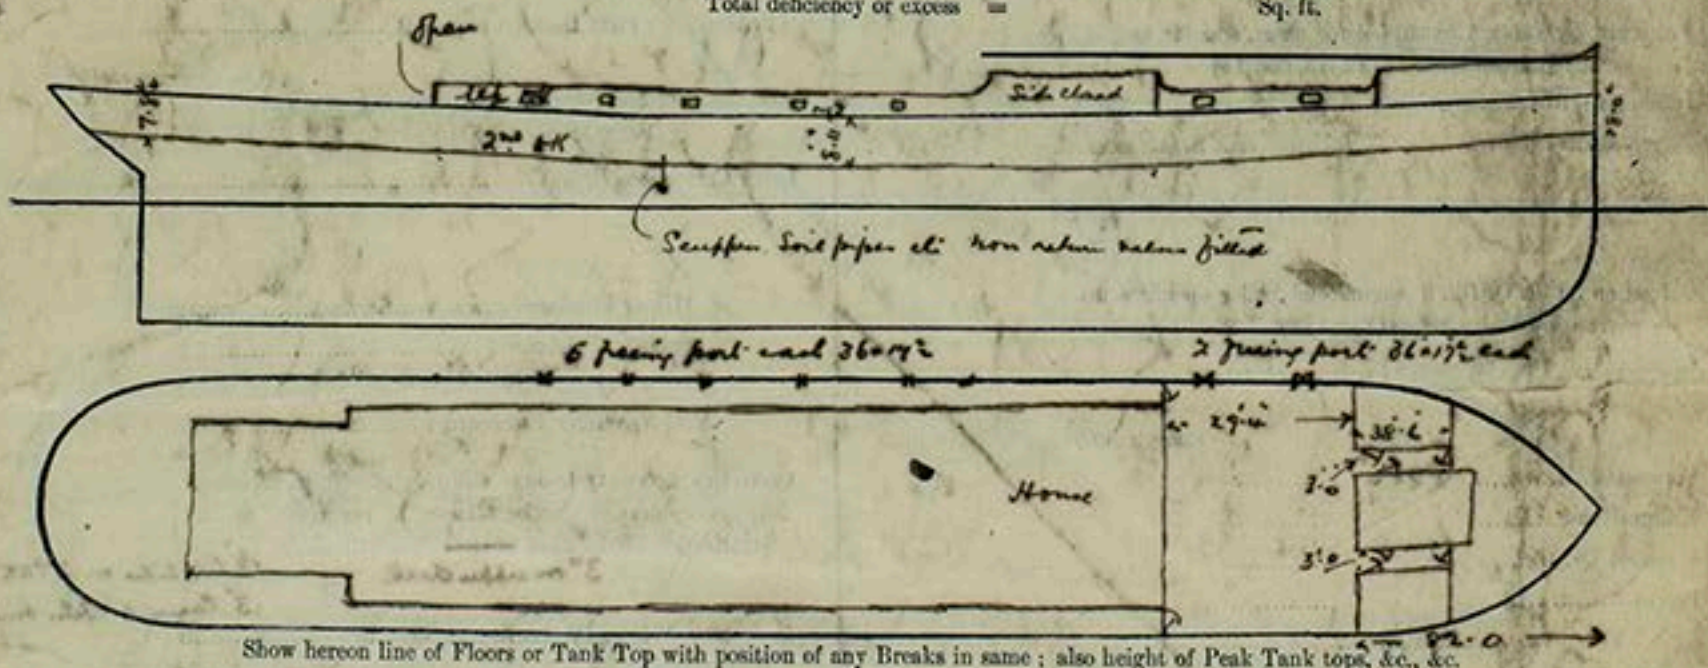 Total deficiency or excess = Sq. ft.
open
Side closed
2nd dk
Scupper Soil pipes etc non return valves fitted
6 freeing port each 36×17½
2 freeing port 36×17½ each
29'-4"
38'-6
3'-0
House
3'-0
82-0
Show hereon line of Floors or Tank Top with position of any Breaks in same ; also height of Peak Tank tops, &c., &c.